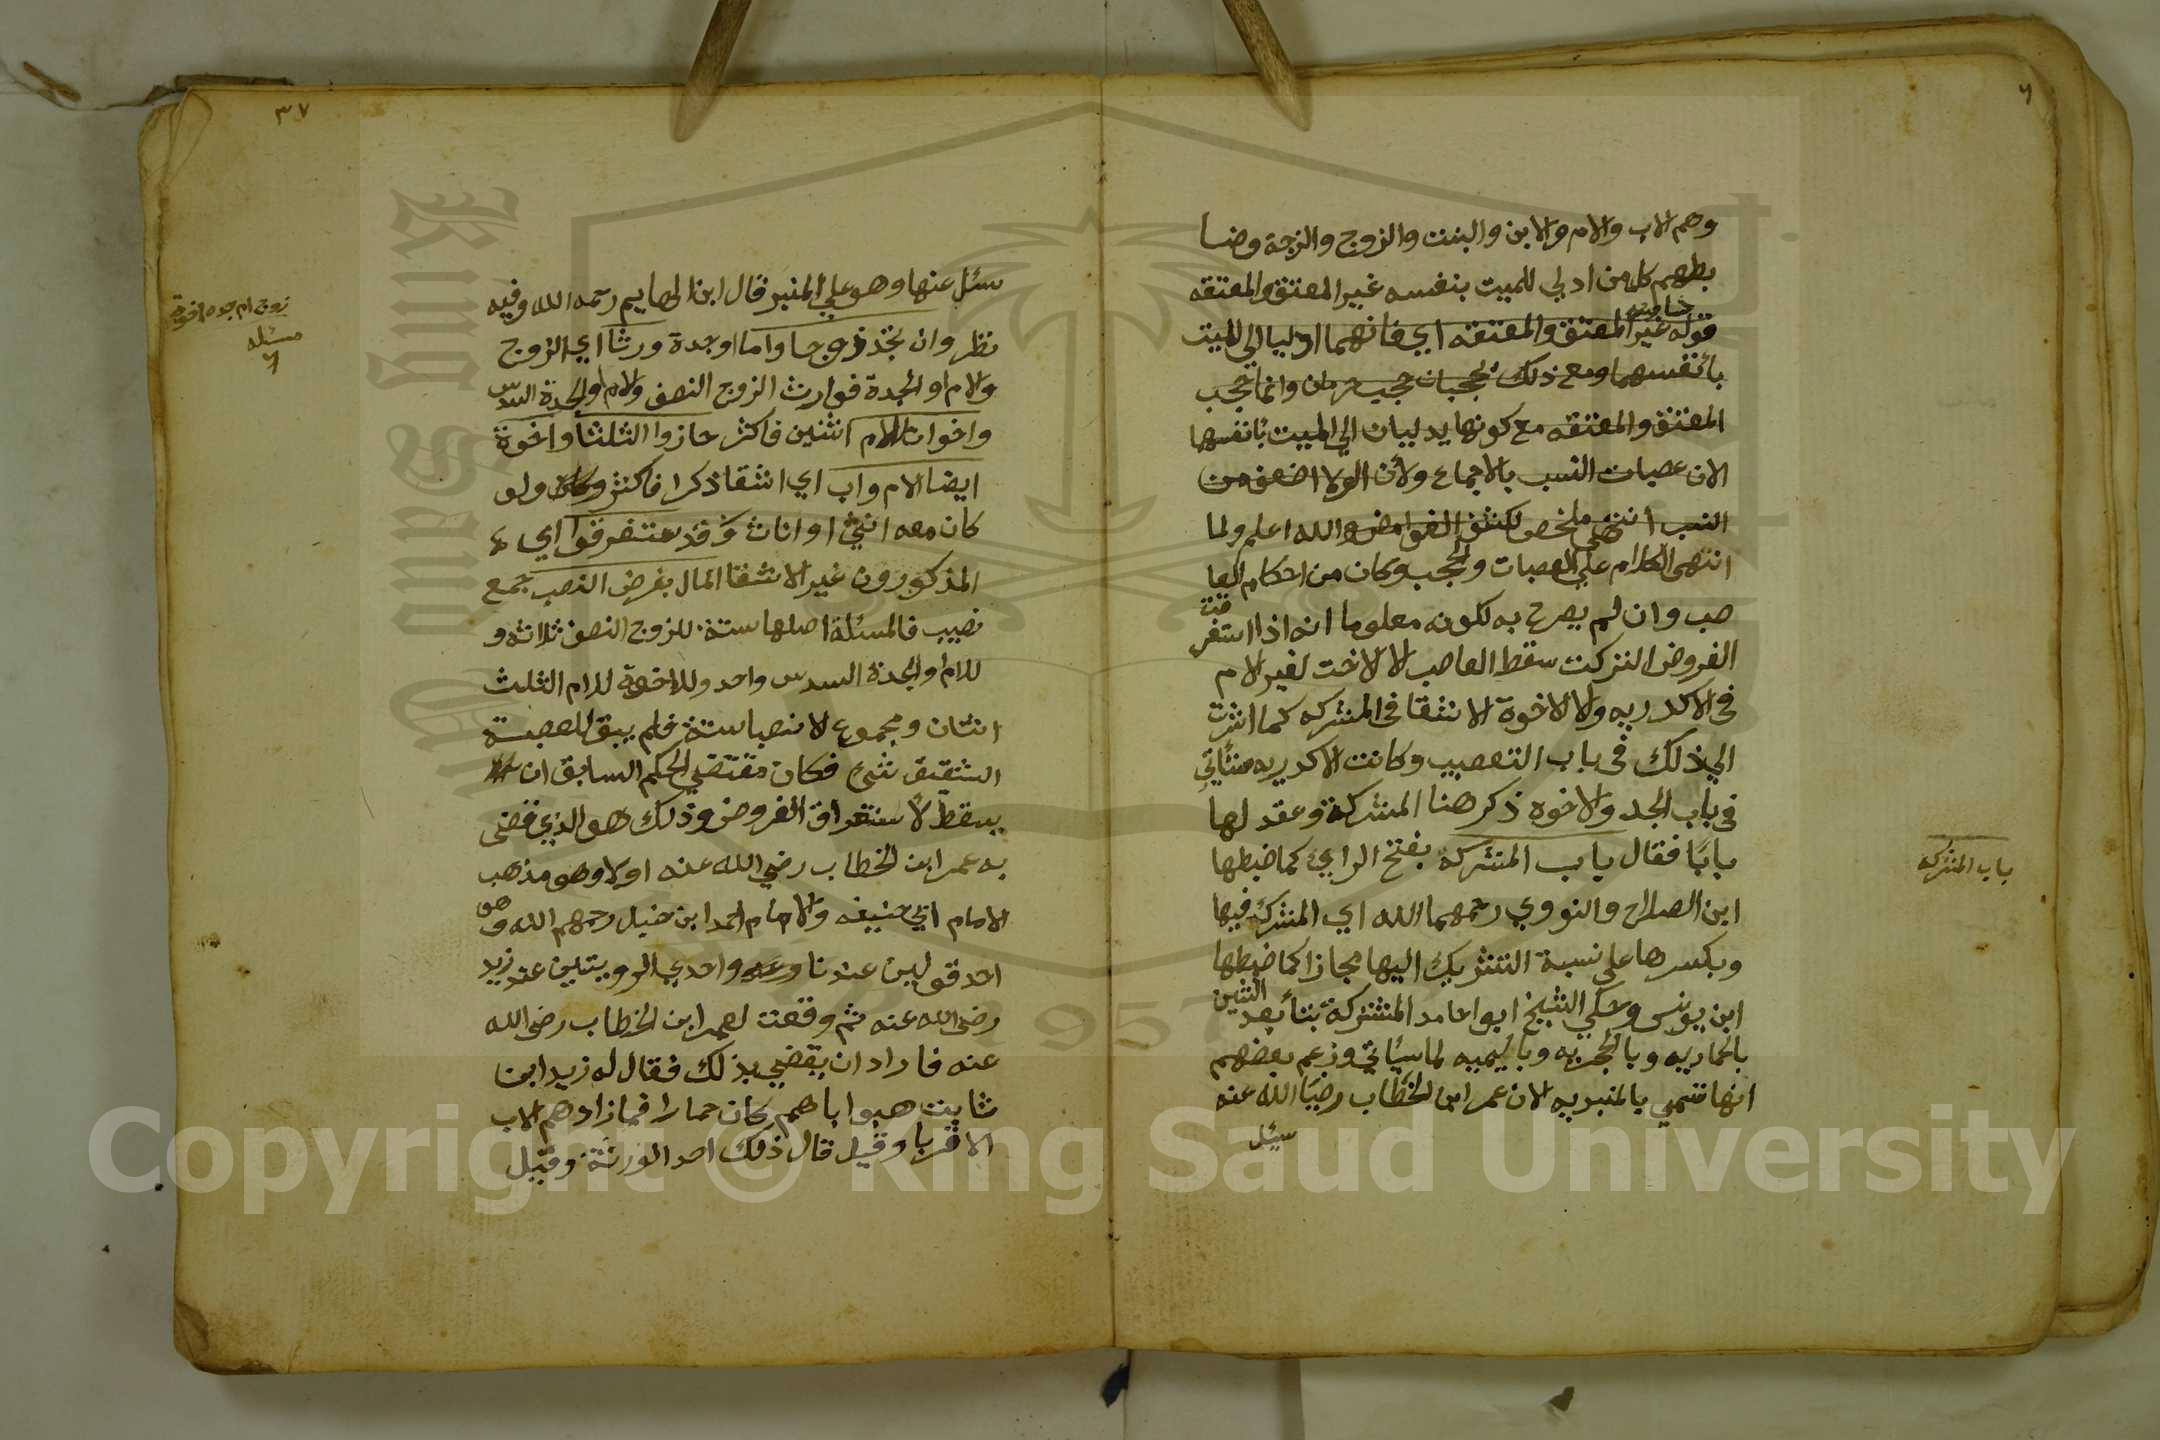 وهم الاب والام والابن والبنت والزوج والزجة وضا
بطهم كل من ادلي للميت بنفسه غير المعتق والمعتقه
قوله غير المعتق والمعتقه اي فانهما ادليا الي الميت
بأنفسهما ومع ذلك يحجبان حجب حرمان وانما حجب
المعتق والمعتقه مع كونهما يدليان الي الميت بانفسهما
لان عصبات النسب بالاجماع ولأن الولا اضعف من
النسب انتهى ملخص لكشف الغوامض والله اعلم ولما
انتهى الكلام علي العصبات والحجب وكان من احكام العا
صب وان لم يصرح به لكونه معلوما انه اذا استغرقت
الفروض التركت سقط العاصب لا الاخت لغير الام
فى الاكدريه ولا الاخوة الاشقا فى المشركه كما اشرت
الي ذلك فى باب التعصيب وكانت الاكدريه ستأتي
فى باب الجد والاخوه ذكر هنا المشركة وعقد لها
بابًا فقال باب المشركة بفتح الراي كما ضبطها
ابن الصلاح والنووي رحمهما الله اي المشرك فيها
وبكسرها على نسبة التشريك اليها مجازا كما ضبطها
ابن يونس وحكي الشيخ ابو احامد المشتركة بتأ بعد الشين
بالحماريه وبالحجريه وباليميه لما سيأتي وزعم بعضهم
انها تسمي بالمنبريه لان عمر ابن الخطاب رضي الله عنه
سئل
باب المشركه
٣٧
سئل عنها وهو علي المنبر قال ابن الهايم رحمه الله وفيه
نظر وان تجد زوجا واما اوجدة ورثا اي الزوج
والام او الجدة فوارث الزوج النصف والام او الجدة السدس
واخوات للام اثنين فاكثر حازوا الثلثا واخوة
ايضا لام واب اي اشقا ذكرا فاكثر ولو
كان معه انثي او اناث وقد استغرقوا اي
المذكورون غير الاشقا المال بفرض النصب جمع
نصيب فالمسئلة اصلها ستة للزوج النصف ثلاثه و
للام او الجدة السدس واحد وللاخوة للام الثلث
اثنان ومجموع الانصبا ستة فلم يبق للعصبة
الشقيق شئ فكان مقتضي الحكم السابق ان
يسقط لأستغراق الفروض وذلك هو الذي قضى
به عمر ابن الخطاب رضي الله عنه اولا وهو مذهب
الامام ابي حنيفه والامام احمد ابن حنبل رحمهم الله وهو
احد قولين عندنا واحدي الرويتين عند زيد
رضى الله عنه ثم وقعت لعمر ابن الخطاب رضى الله
عنه فاراد ان يقضي بذلك فقال له زيد ابن
ثابت هبوا اباهم كان حمارا فما زادهم الاب
الا قربا وقيل قال ذلك احد الورثة وقيل
زوج ام جده اخوة
مسئله
٦
Copyright © King Saud University
1957